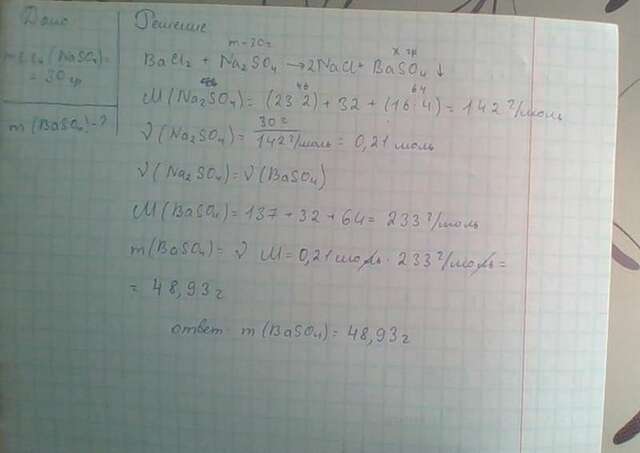 Дано
m в-ва (Na₂SO₄) =
= 30 гр
m (BaSO₄) - ?
Решение
m = 30г
x гр
BaCl₂ + Na₂SO₄ → 2NaCl + BaSO₄ ↓
46
64
M (Na₂SO₄) = (23·2) + 32 + (16·4) = 142 г/моль
ν (Na₂SO₄) = 30 г / 142 г/моль = 0,21 моль
ν (Na₂SO₄) = ν (BaSO₄)
M (BaSO₄) = 137 + 32 + 64 = 233 г/моль
m (BaSO₄) = ν M = 0,21 моль · 233 г/моль =
= 48,93 г
ответ: m (BaSO₄) = 48,93 г